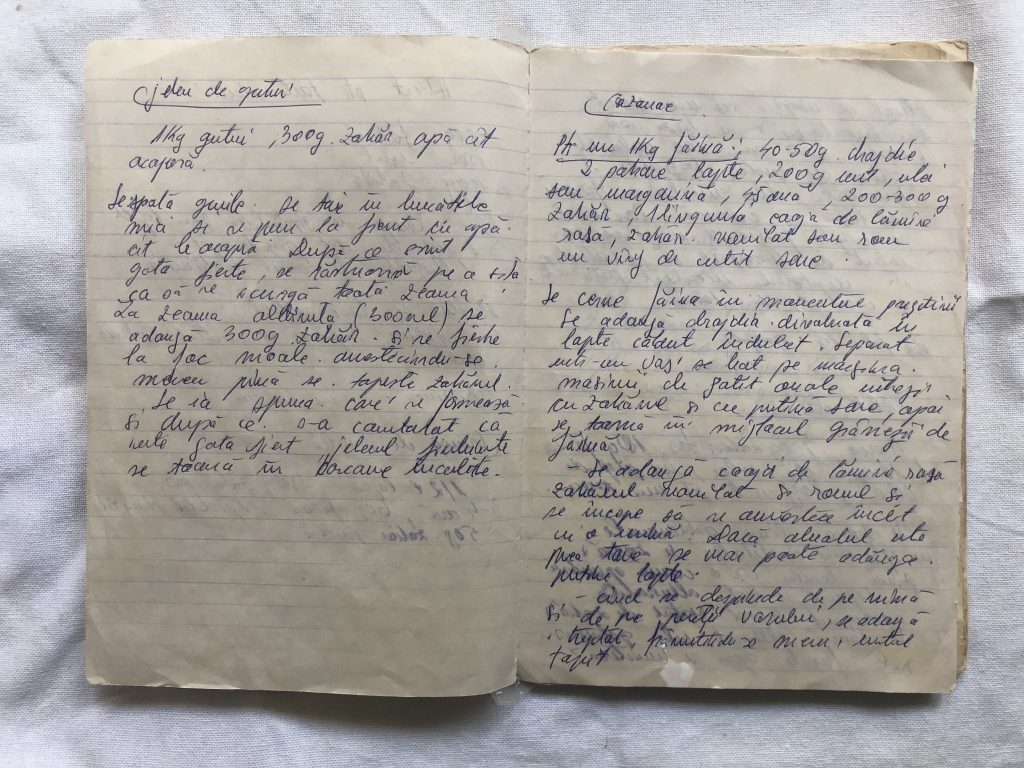 jeleu de gutui
1Kg gutui, 300g. zahăr. apă cît
acoperă.
Se spală gutuile. se taie în bucățele
mici și se pun la fiert cu apă.
cît le acoperă. După ce sînt
gata fierte, se răstoarnă pe o sită
ca să se scurgă toată zeama.
La zeama obținută (300ml) se
adaugă 300g zahăr. și se fierbe
la foc moale. amestecîndu-se
mereu pînă se topește zahărul.
Se ia spuma care se formează
și după ce s-a constatat că
este gata fiert jeleul fierbinte
se toarnă în borcane încălzite.
Cozonac
Pt un 1Kg făină; 40-50g. drojdie
2 pahare lapte, 200g unt, ulei
sau margarină, ouă, 200-300g
zahăr 1 linguriță coajă de lămîie
rasă, zahăr. vanilat sau rom
un vîrf de cuțit sare.
Se cerne făina în mijlocul
se adaugă drojdia. dizolvată în
lapte căldut îndulcit. Separat
într-un vas se bat cu mașina
de gătit ouăle întregi
cu zahărul și cu puțină sare, apoi
se toarnă în mijlocul grămezii de
făină.
Se adaugă coaja de lămîie rasă
zahărul vanilat și romul și
se începe să se amestece încet
cu o mînă. Dacă aluatul este
prea tare se mai poate adăuga
puțin lapte.
cînd se desprinde de pe mînă
și de pe pereții vasului, se adaugă
treptat, frămîntîndu-se mereu, untul
topit